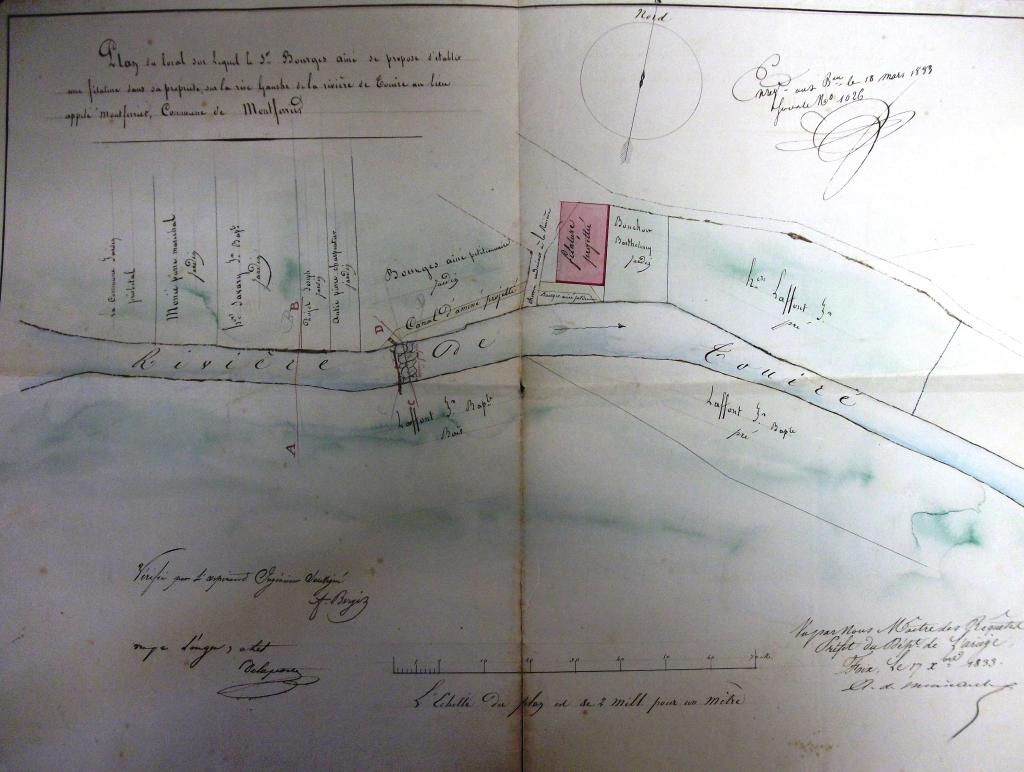 Plan du local sur lequel le Sr. Bourges ainé se propose d'établir
une filature dans sa propriété, sur la rive Gauche de la rivière de Touire au lieu
appelé Montferrier, Commune de Montferrier
Nord
Enregt. aux Bux le 18 mars 1833
No. 1026
la Commune
Monié pierre marechal
jardin
hers Savary Jn Bapte
jardin
B
Joseph
jardin
Autié pierre charpentier
jardin
Bourges ainé petitionnaire
jardin
Canal d'aminé projetté
D
C
A
à la Rivière
filature
projettée
Bourges ainé
Bouchou
Barthelemy
jardin
hers Laffont Jn
pré
Rivière De Touire
Laffont Jn Bapte
Bois
Laffont Jn Bapte
pré
Vérifié par l'aspirant Ingénieur Soussigné
Vu par Nous Maître des Requêtes
Préfet du Dépt. de l'ariège.
Foix, Le 17 Xbre 1833.
10 20 30 40 50 60 70 M.
L'Echelle du plan est de 2 mill. pour un mètre